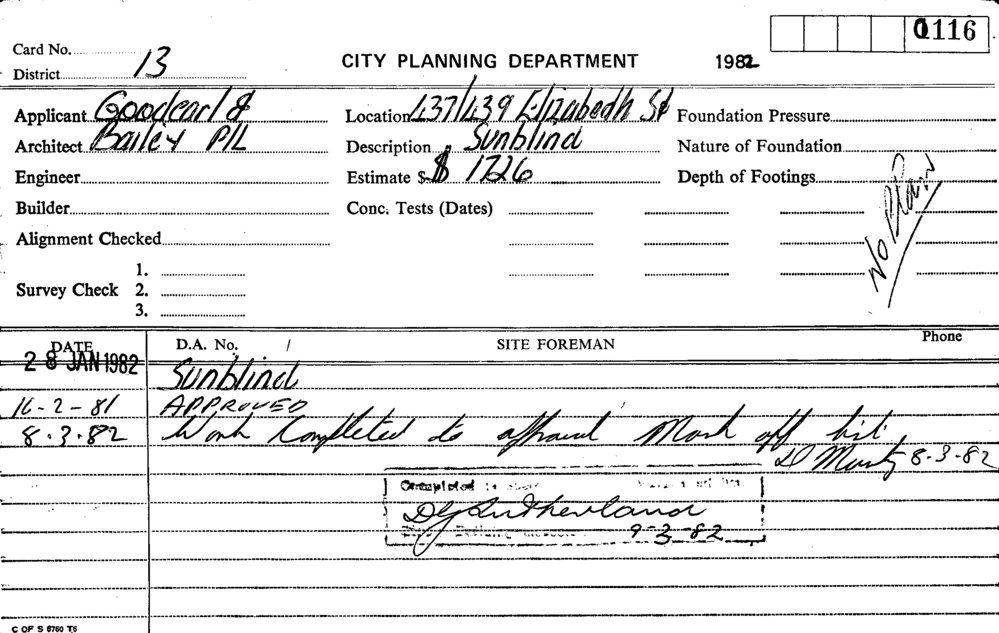 0116
Card No.
District 13
CITY PLANNING DEPARTMENT 1982
Applicant Goodearl &
Location 437/439 Elizabedh St
Foundation Pressure
Architect Bailey P/L
Description Sunblind
Nature of Foundation
Engineer
Estimate $ $ 1726
Depth of Footings
Builder
Conc. Tests (Dates)
No Plan
Alignment Checked
1.
Survey Check 2.
3.
DATE D.A. No. / SITE FOREMAN Phone
28 JAN 1982 Sunblind
16-2-81 APPROVED
8.3.82 Work Completed to Mark off list.
8-3-82
Completed
DG Sutherland
9-3-82
C OF S 8760 T6